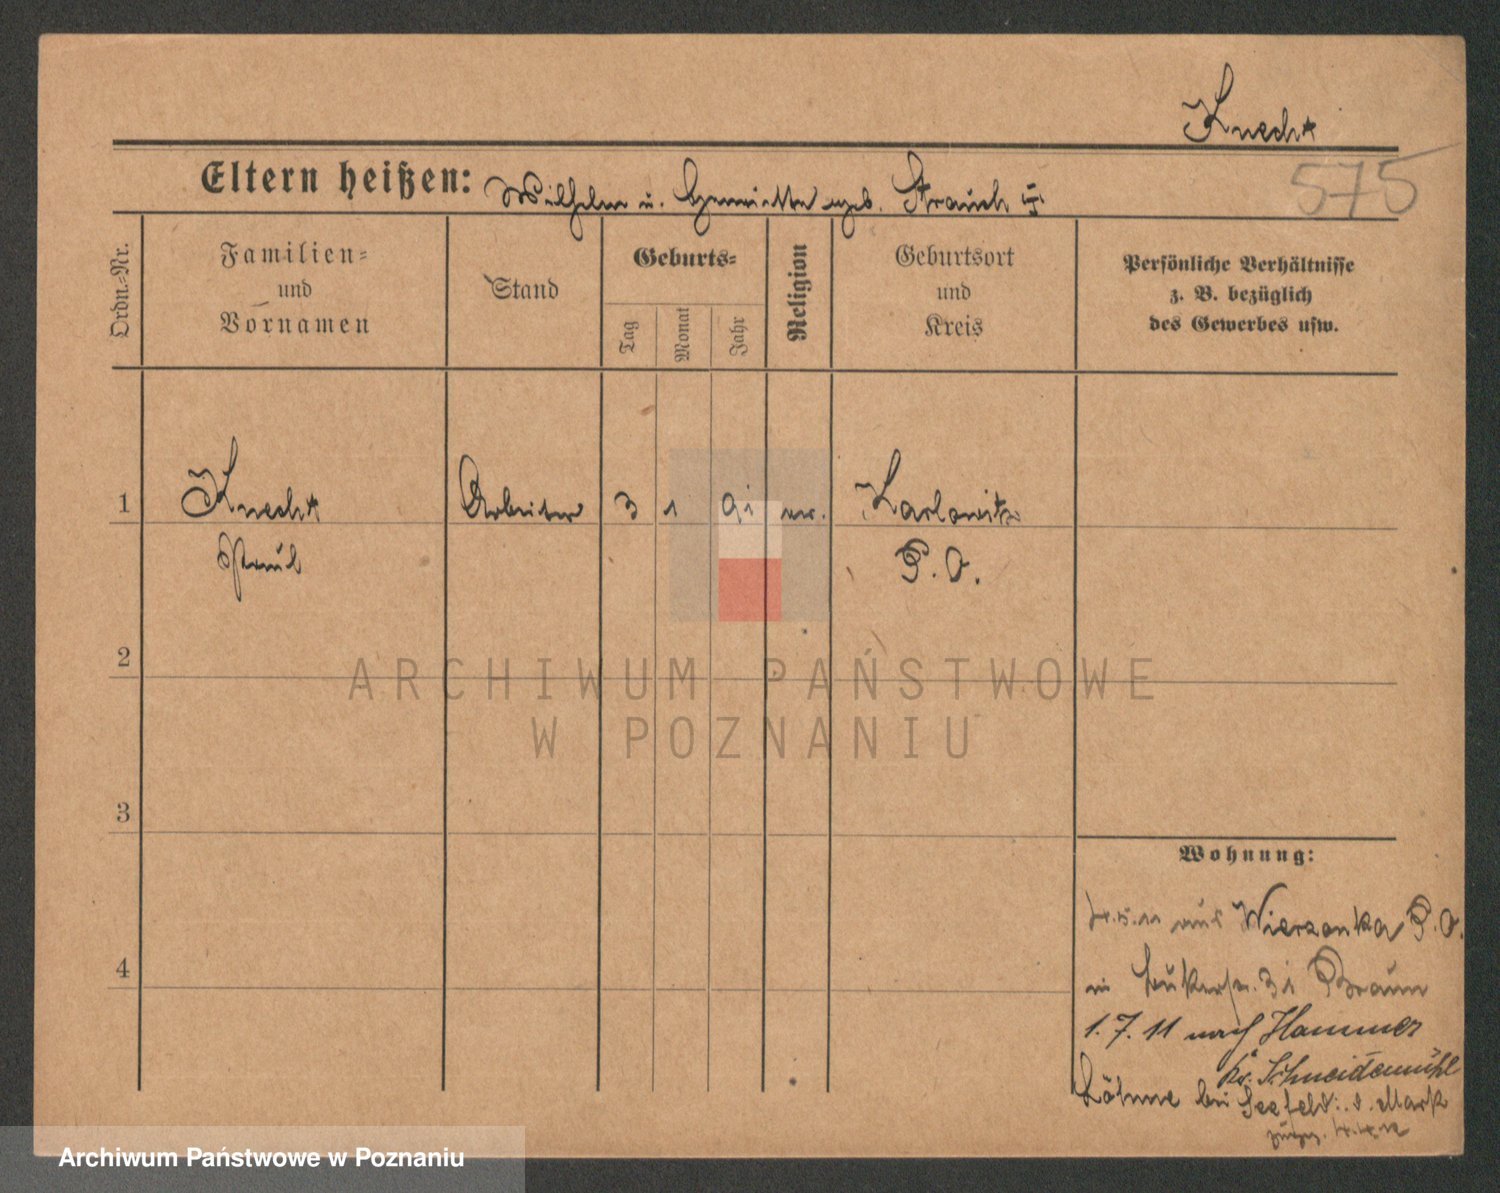 Knecht
575
Eltern heißen: Wilhelm u. Henriette geb. Strauch
Ordn.-Nr.
Familien-
und
Vornamen
Stand
Geburts-
Tag
Monat
Jahr
Religion
Geburtsort
und
Kreis
Persönliche Verhältnisse
z. B. bezüglich
des Gewerbes usw.
1 Knecht Arbeiter 3 1 91 ev. Karlowitz
Paul P. O.
2
3
4
Wohnung:
4.5.11 aus Wierzonka P. O.
31 Braun
1.7.11 nach Hammer
Kr. Schneidemühl
Löhme bei Seefeld i. d. Mark
ARCHIWUM PAŃSTWOWE
W POZNANIU
Archiwum Państwowe w Poznaniu